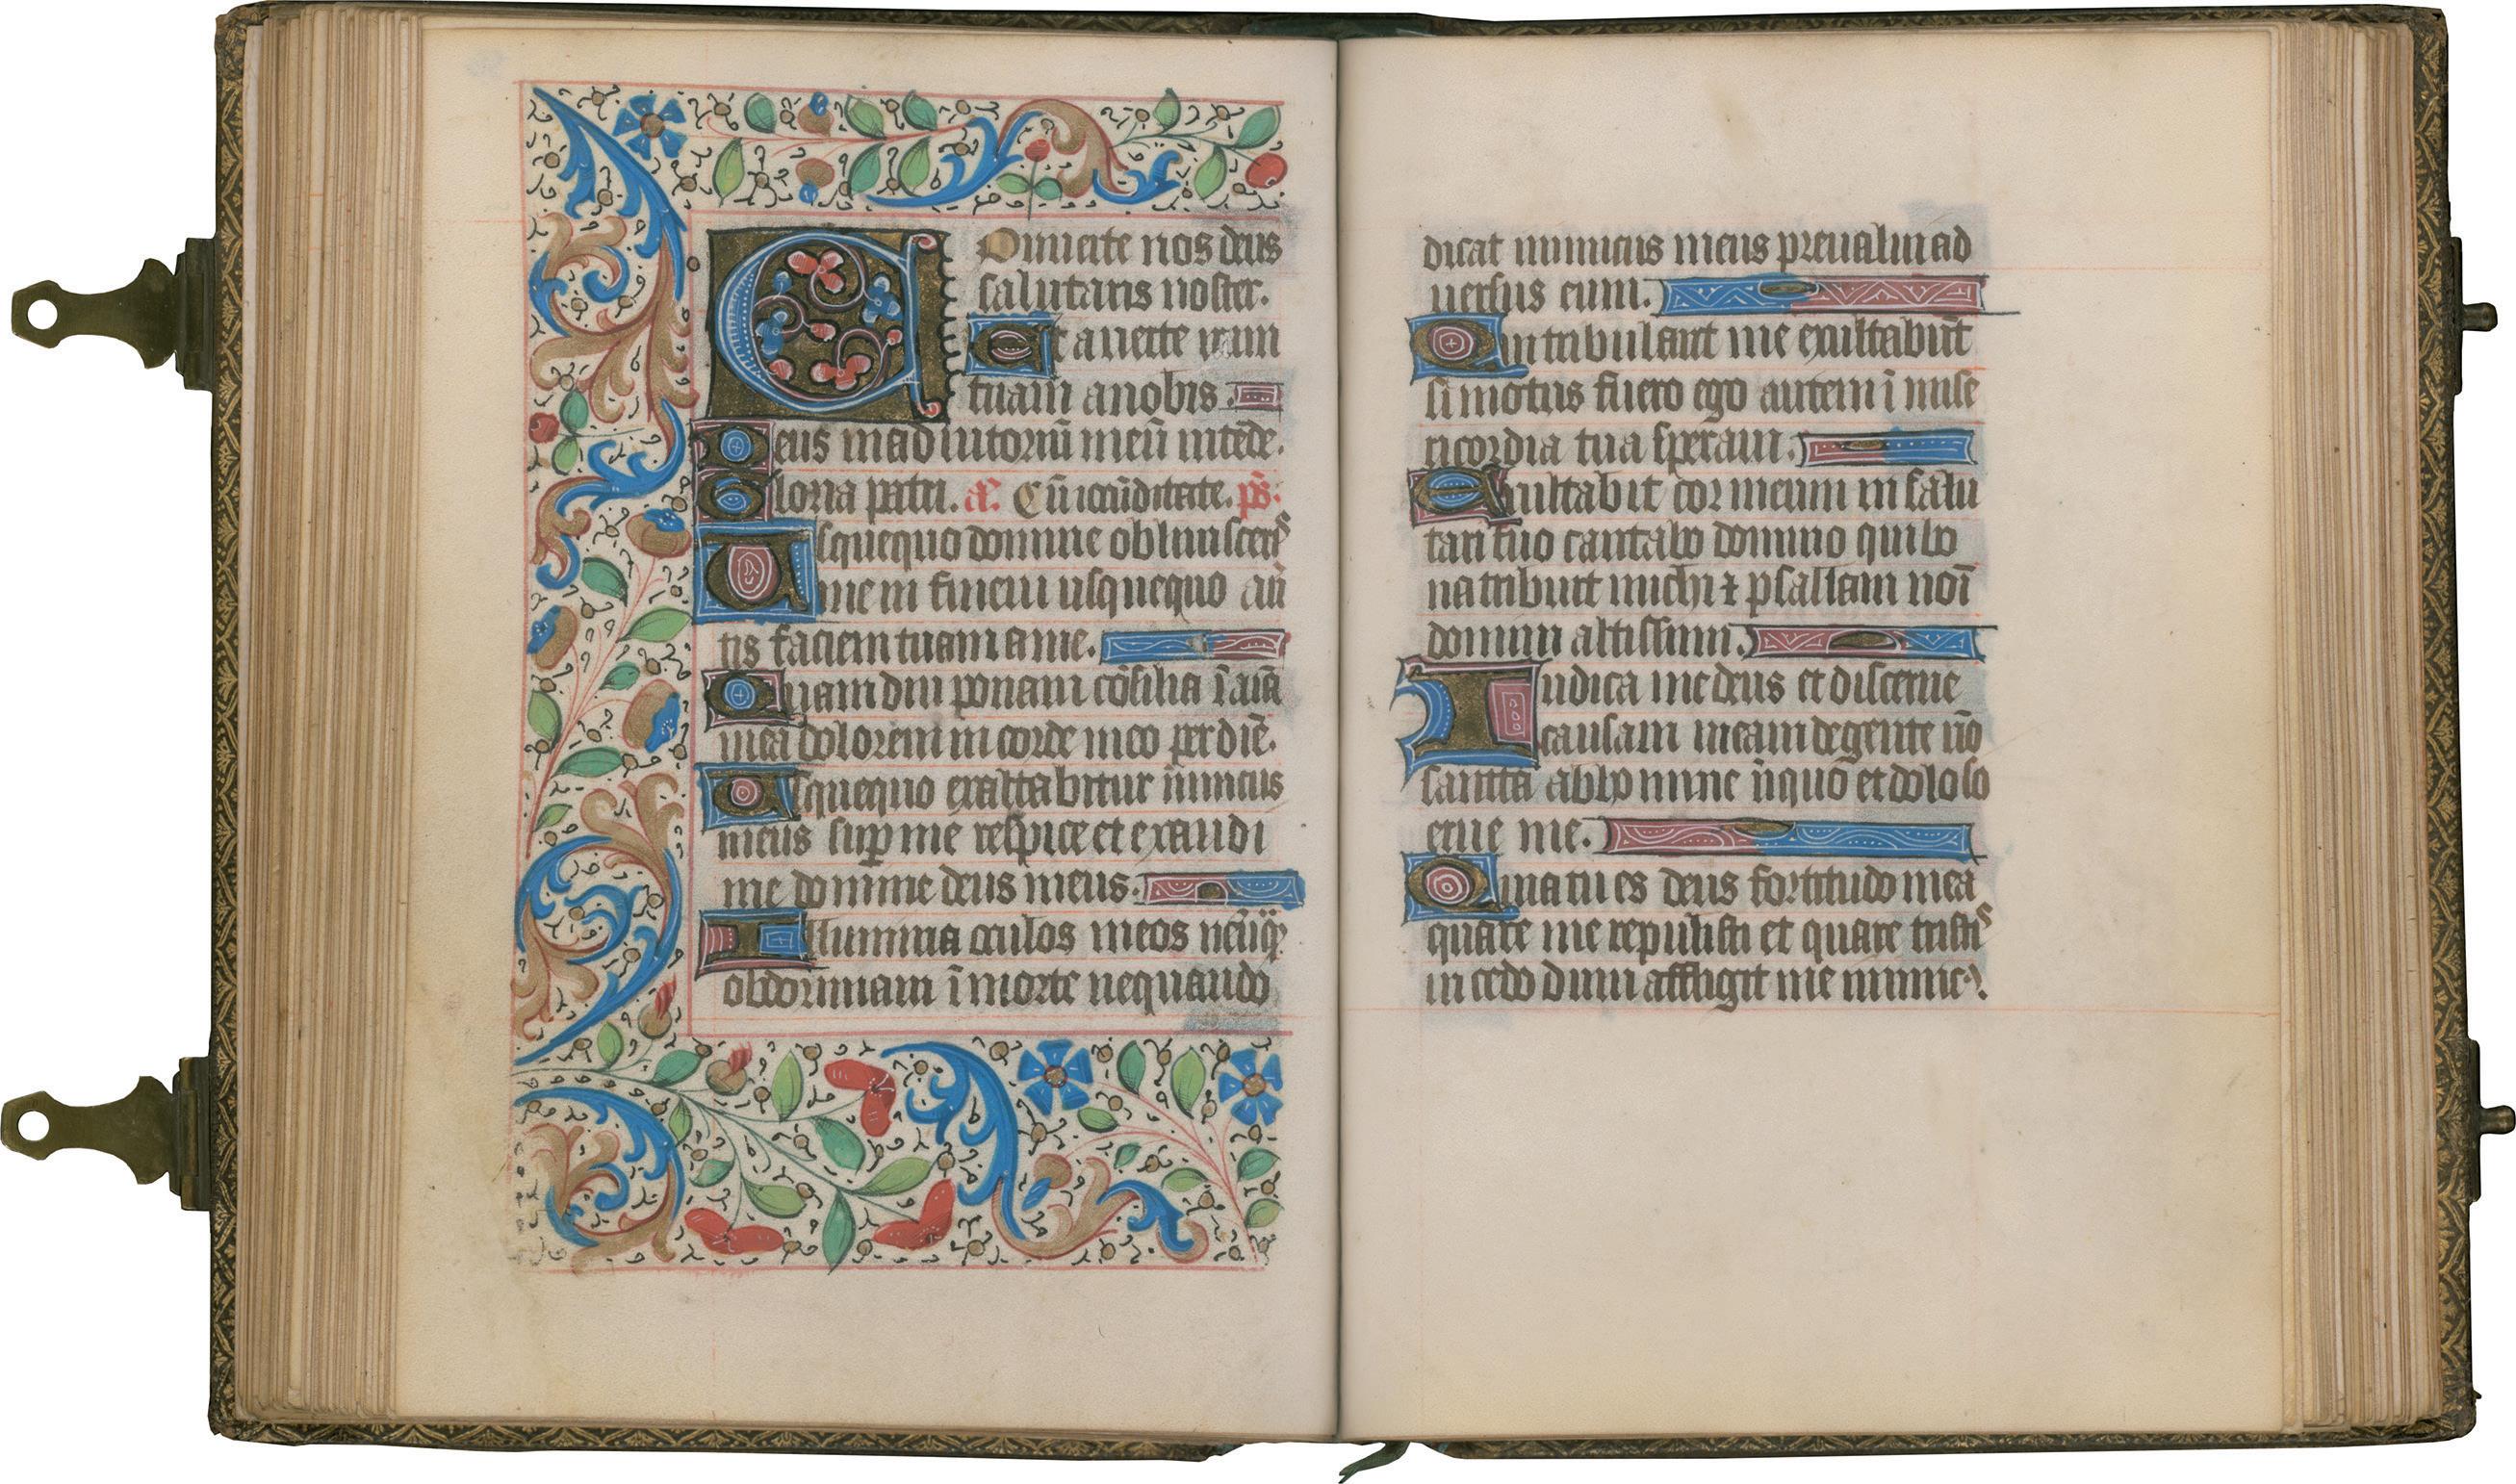 Conuerte nos deus
salutaris noster.
Et auerte iram
tuam a nobis.
Deus in adiutoriū meū intēde.
Gloria patri. añ. Cū iocūditate. ps.
Usquequo domine obliuisceris
me in finem usquequo auer
tis faciem tuam a me.
Quam diu ponam cōsilia ī aīa
mea dolorem in corde meo per diē.
Usquequo exaltabitur inimicus
meus sup me respice et exaudi
me domine deus meus.
Illumina oculos meos ne ūq
obdormiam ī morte nequando
dicat inimicus meus preualui ad
uersus eum.
Qui tribulant me exultabūt
si motus fuero ego autem ī mise
ricordia tua speraui.
Exultabit cor meum in salu
tari tuo cantabo domino qui bo
na tribuit michi ⁊ psallam noī
domini altissimi.
Iudica me deus et discerne
causam meam de gente nō
sancta ab hoīmine iniquo et doloso
erue me.
Quia tu es deus fortitudo mea
quare me repulisti et quare tristis
incedo dum affligit me inimic⁹.